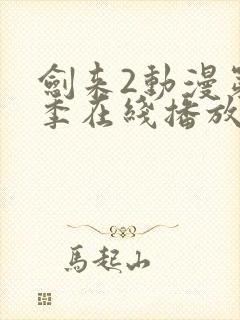 劍来2動漫第
季在綫播放
馬起山